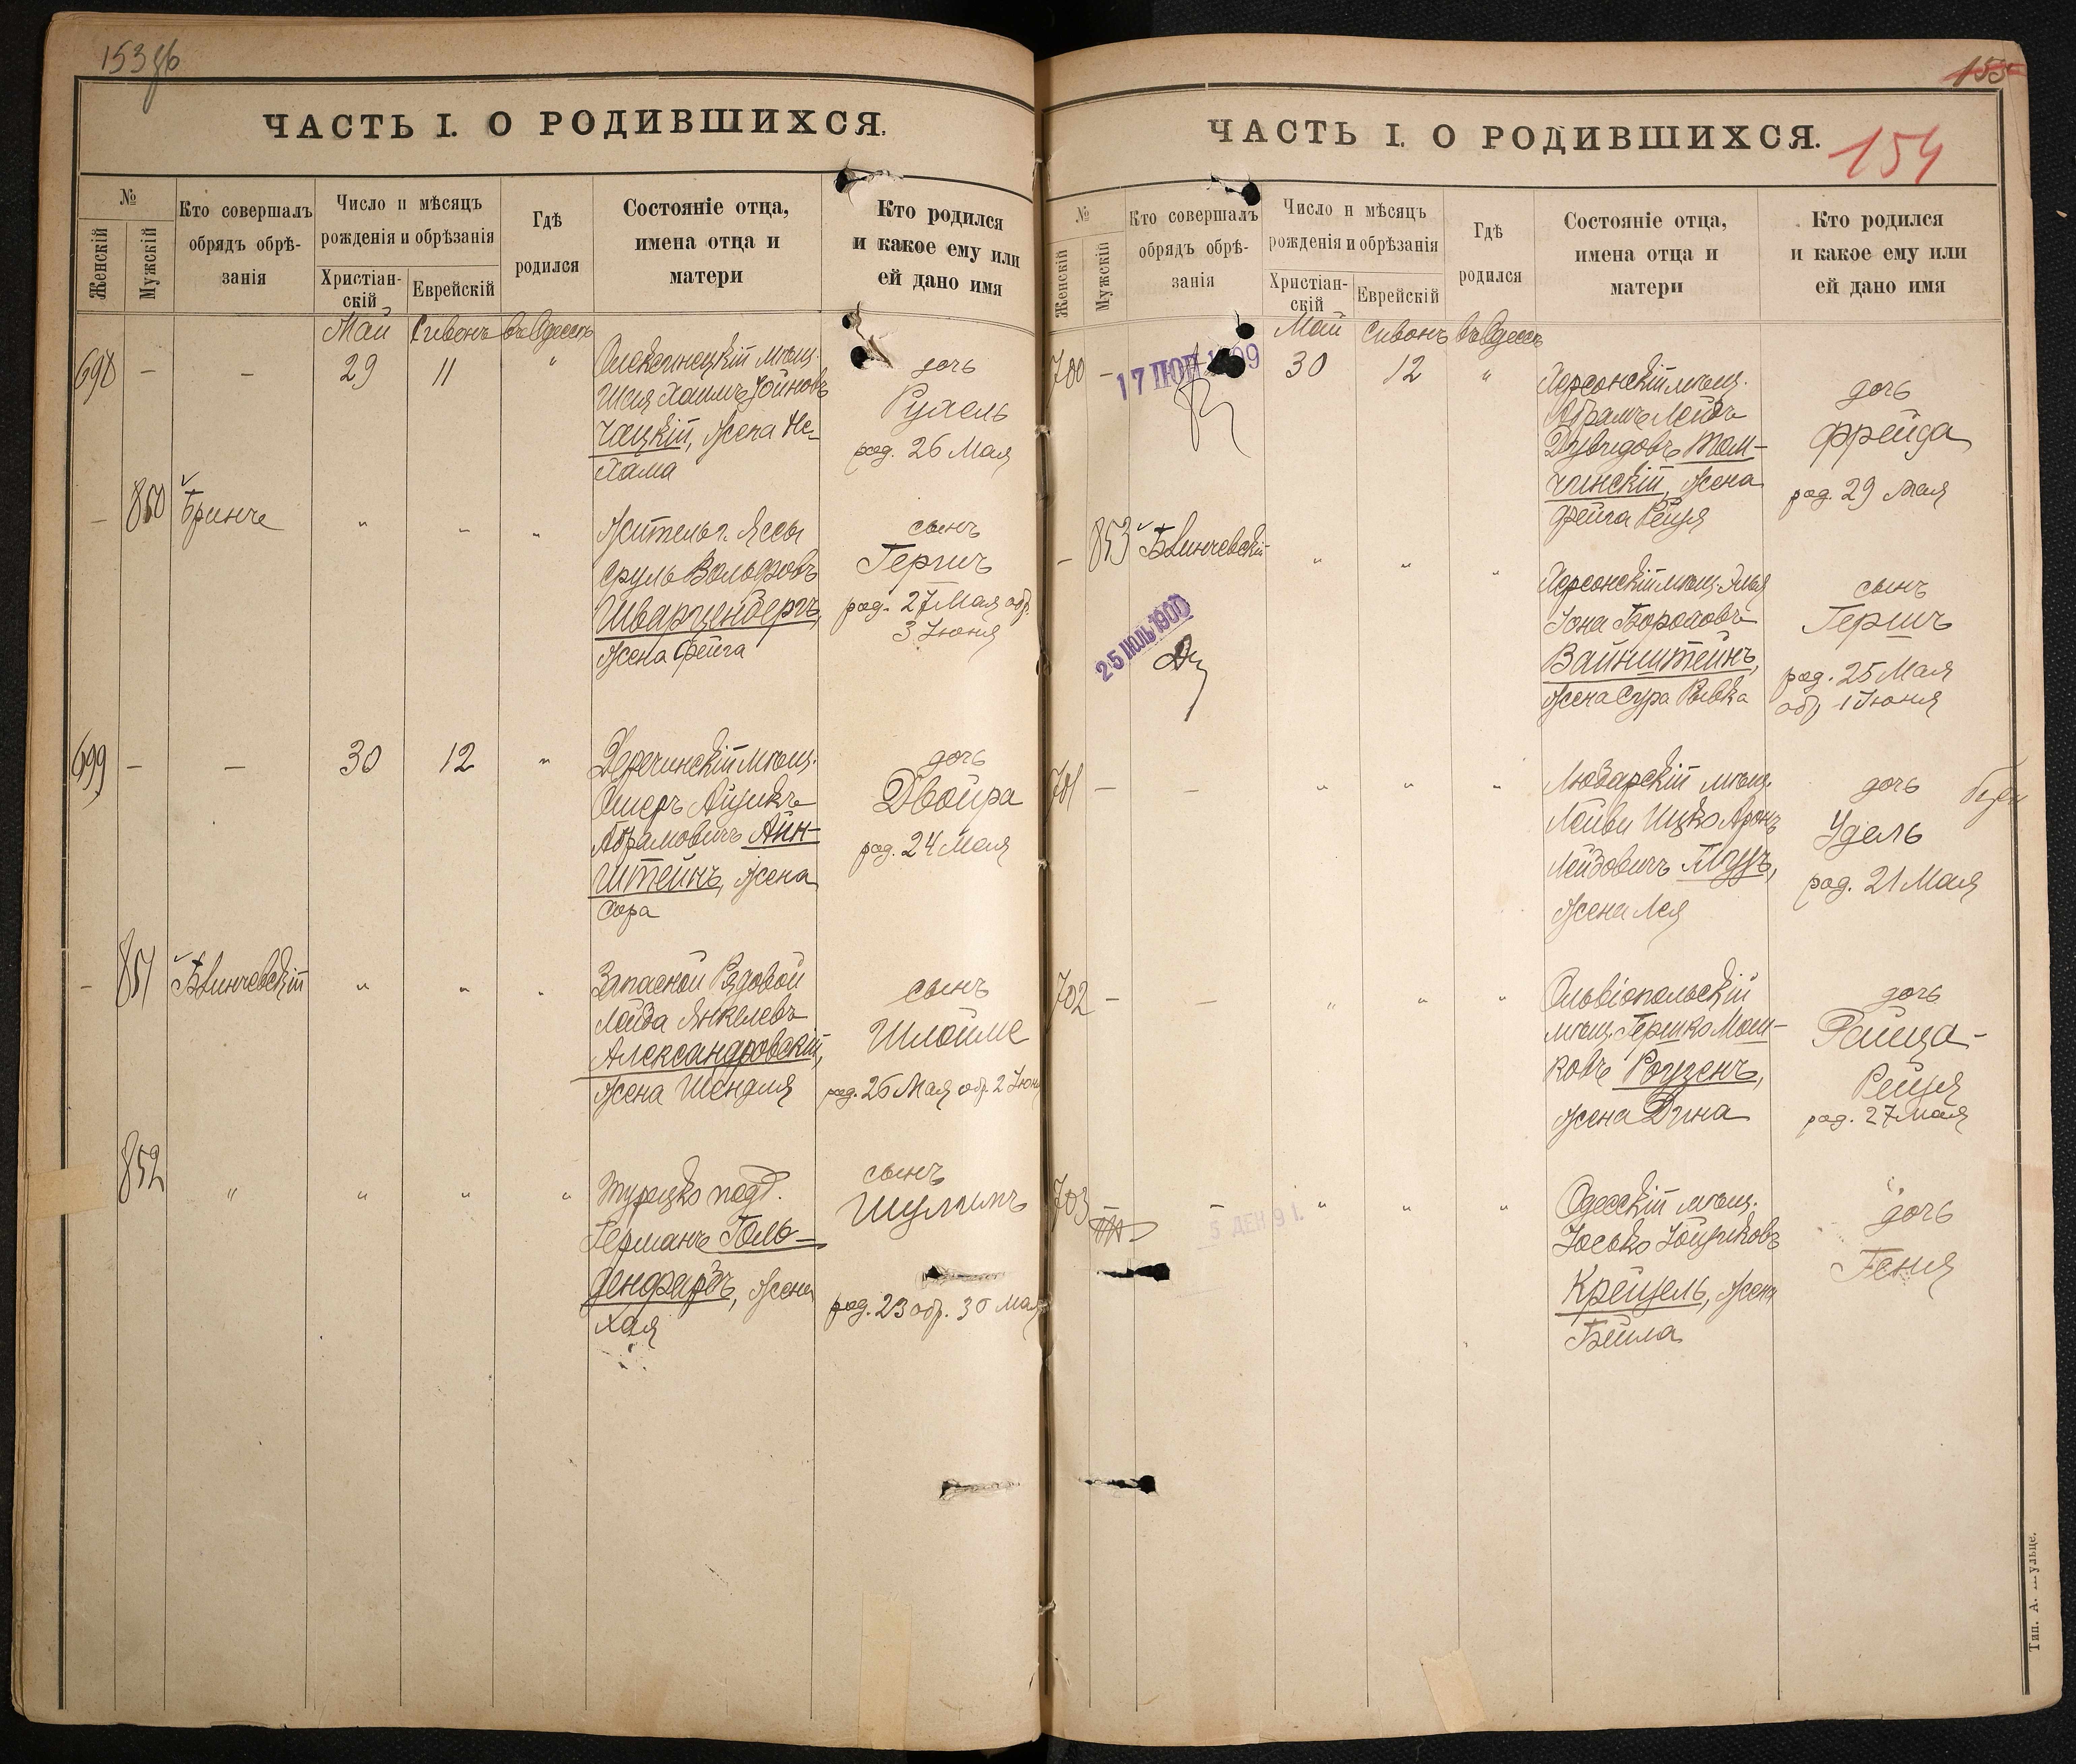 153 об
ЧАСТЬ I. О РОДИВШИХСЯ.
№
Женскій
Мужскій
Кто совершалъ
обрядъ обрѣ-
занія
Число и мѣсяцъ
рожденія и обрѣзанія
Христіан-
скій
Еврейскій
Гдѣ
родился
Состояніе отца,
имена отца и
матери
Кто родился
и какое ему или
ей дано имя
Май Сивонъ въ Одессѣ
698 — — 29 11 "
мѣщ.
Шая Хаимъ
жена Не-
хама
дочь
Рухель
род. 26 Мая
— 850 Бринче " " "
Житель г. Яссы
Сруль Вольфовъ
Шварценбергъ,
жена Фейга
сынъ
Гершъ
род. 27 Мая обр.
3 Іюня
699 — — 30 12 "
Деречинскій мѣщ.
Ошеръ Айзикъ
Абрамовичъ Айн-
штейнъ, жена
Сора
дочь
Двойра
род. 24 Мая
— 851 Блинчевскій " " "
Запасной Рядовой
Лейба Янкелевъ
Александровскій,
жена Шендля
сынъ
Шлойме
род. 26 Мая обр. 2 Іюня
852 " " " "
Турецко подд.
Германъ Голь-
денфарбъ, жена
Хая
сынъ
Шулимъ
род. 23 обр. 30 Мая
155
154
ЧАСТЬ I. О РОДИВШИХСЯ.
№
Женскій
Мужскій
Кто совершалъ
обрядъ обрѣ-
занія
Число и мѣсяцъ
рожденія и обрѣзанія
Христіан-
скій
Еврейскій
Гдѣ
родился
Состояніе отца,
имена отца и
матери
Кто родился
и какое ему или
ей дано имя
Май Сивонъ въ Одессѣ
700 — 30 12 "
Херсонскій мѣщ.
Абрамъ Лейбъ
Дувидовъ Том-
чинскій, жена
Фейга Рейзя
дочь
Фрейда
род. 29 Мая
— 853 Блинчевскій " " "
25 ІЮЛЬ 1900
Херсонскій мѣщ. Илья
Іона Бороховъ
Вайнштейнъ,
жена Сура Ривка
сынъ
Гершъ
род. 25 Мая
обр. 1 Іюня
701 — — " " "
Любарскій мѣщ.
Ицко Аронъ
Лейбовичъ
жена Лея
дочь
Удель
род. 21 Мая
702 — — " " "
Ольвіопольскій
мѣщ. Гершко Мош-
ковъ Розценъ,
жена Дина
дочь
Раица-
Рейзя
род. 27 Мая
703 — " " "
Одесскій мѣщ.
Іосько Іойзиковъ
Крейцель, жена
Бейла
дочь
Геня
5 ДЕК 91.